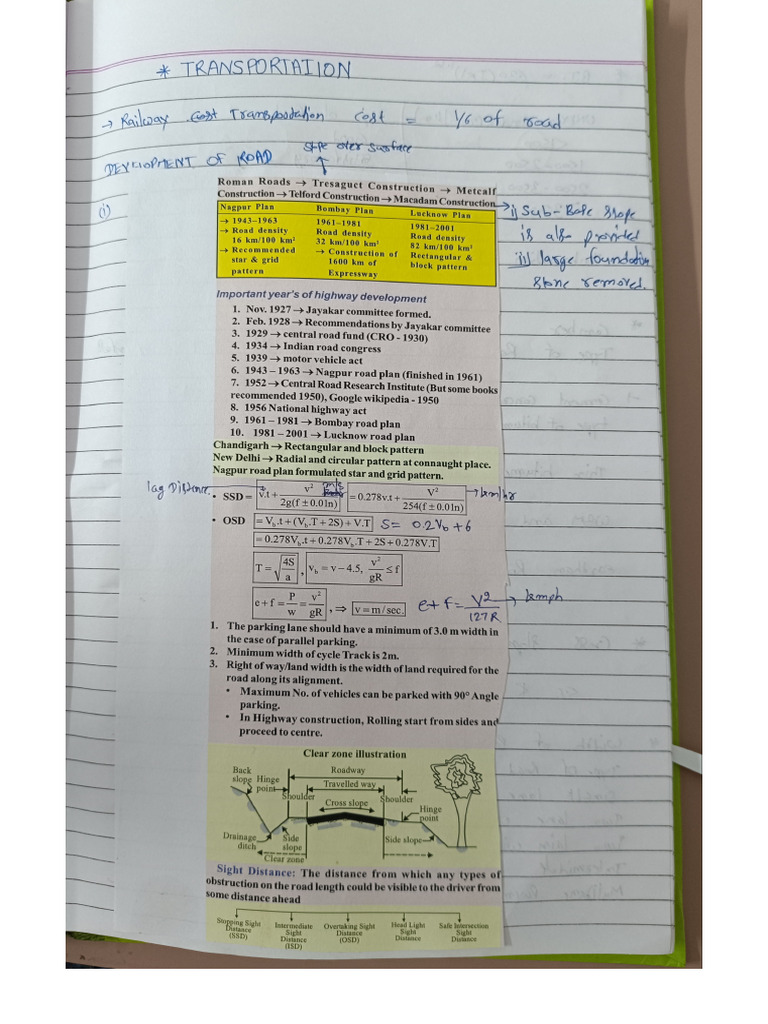 * TRANSPORTATION
→ Railway Cost Transpoodation Cost = 1/6 of road
Slpe over surface
DEVELOPMENT OF ROAD
(i)
Roman Roads → Tresaguct Construction → Metcalf
Construction → Telford Construction → Macadam Construction
Nagpur Plan
→ 1943–1963
→ Road density
16 km/100 km²
→ Recommended
star & grid
pattern
Bombay Plan
1961–1981
Road density
32 km/100 km²
→ Construction of
1600 km of
Expressway
Lucknow Plan
1981–2001
Road density
82 km/100 km²
Rectangular &
block pattern
→ i) Sub-Base slope
is also provided
ii) large foundation
stone removed.
Important year's of highway development
1. Nov. 1927 → Jayakar committee formed.
2. Feb. 1928 → Recommendations by Jayakar committee
3. 1929 → central road fund (CRO - 1930)
4. 1934 → Indian road congress
5. 1939 → motor vehicle act
6. 1943 – 1963 → Nagpur road plan (finished in 1961)
7. 1952 → Central Road Research Institute (But some books
recommended 1950), Google wikipedia - 1950
8. 1956 National highway act
9. 1961 – 1981 → Bombay road plan
10. 1981 – 2001 → Lucknow road plan
Chandigarh → Rectangular and block pattern
New Delhi → Radial and circular pattern at connaught place.
Nagpur road plan formulated star and grid pattern.
lag Distance
• SSD = v.t + v²/2g(f ± 0.01n) = 0.278v.t + V²/254(f ± 0.01n) → km/hr
• OSD = Vb.t + (Vb.T + 2S) + V.T S = 0.2Vb + 6
= 0.278Vb.t + 0.278Vb.T + 2S + 0.278V.T
T = √4S/a , vb = v – 4.5, v²/gR ≤ f
e + f = P/w = v²/gR , ⇒ v = m/sec. e + f = V²/127R → kmph
1. The parking lane should have a minimum of 3.0 m width in
the case of parallel parking.
2. Minimum width of cycle Track is 2m.
3. Right of way/land width is the width of land required for the
road along its alignment.
• Maximum No. of vehicles can be parked with 90° Angle
parking.
• In Highway construction, Rolling start from sides and
proceed to centre.
Clear zone illustration
Back
slope
Hinge
point
Roadway
Travelled way
Shoulder
Cross slope
Shoulder
Hinge
point
Drainage
ditch
Side
slope
Side slope
Clear zone
Sight Distance: The distance from which any types of
obstruction on the road length could be visible to the driver from
some distance ahead
Stopping Sight
Distance
(SSD)
Intermediate
Sight
Distance
(ISD)
Overtaking Sight
Distance
(OSD)
Head Light
Sight
Distance
Safe Intersection
Sight
Distance